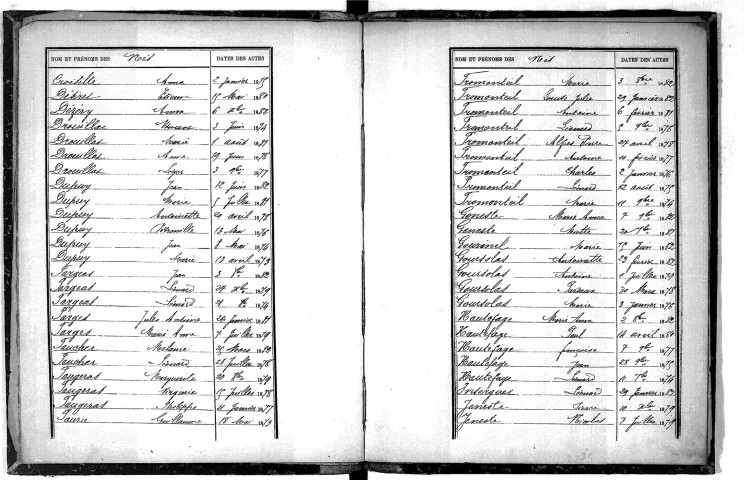 NOM ET PRÉNOMS DES Nés DATES DES ACTES
Croiselle Anna 2 Janvier 1875
Etienne 15 Mai 1880
Dézéry Anna 6 Xbre 1882
Drouillas 3 Juin 1874
Drouillas Marie 1 août 1881
Drouillas Anne 29 Juin 1878
Drouillas 3 1877
Dupuy Jean 12 Juin 1882
Dupuy Marie 5 Juillet 1881
Dupuy Antoinette 20 avril 1878
Dupuy Petronille 13 Mai 1876
Dupuy Jean 8 Mai 1874
Dupuy Marie 13 avril 1873
Fargeas Jean 3 1882
Fargeas Léonard 29 Xbre 1879
Fargeas Léonard 21 1874
Farges Jules Antoine 24 Janvier 1881
Farges Marie Anne 7 Juillet 1879
Faucher Mélanie 25 Mars 1882
Faucher Léonard 28 Juillet 1878
Faugeras Marguerite 20 1879
Faugeras Virginie 15 Juillet 1878
Faugeras Philippe 11 Janvier 1877
Faurie Guillaume 18 Mai 1873
NOM ET PRÉNOMS DES Nés DATES DES ACTES
Fromonteil Marie 3 8bre 1882
Fromonteil Louise Julie 29 Janvier 1881
Fromonteil Antoine 6 février 1881
Fromonteil Léonard 2 9bre 1878
Fromonteil Pierre 24 avril 1878
Fromonteil Antoine 10 février 1877
Fromonteil Charles 2 Janvier 1876
Fromonteil Léonard 12 août 1875
Fromonteil Marie 11 9bre 1874
Geneste Marie Anna 7 9bre 1882
Geneste 20 7bre 1881
Marie 15 Juin 1882
Goursolas Antoinette 23 février 1882
Goursolas Antoine 1 Juillet 1879
Goursolas 30 Mars 1878
Goursolas Marie 3 Janvier 1876
Hautefage Marie Anna 2 8bre 1882
Hautefage Paul 14 avril 1880
Hautefage Françoise 7 9bre 1877
Hautefage Jean 28 9bre 1875
Hautefage Léonard 11 7bre 1874
Léonard 29 Janvier 1873
Jeneste Pierre 10 Xbre 1879
Jeneste Nicolas 7 Juillet 1879